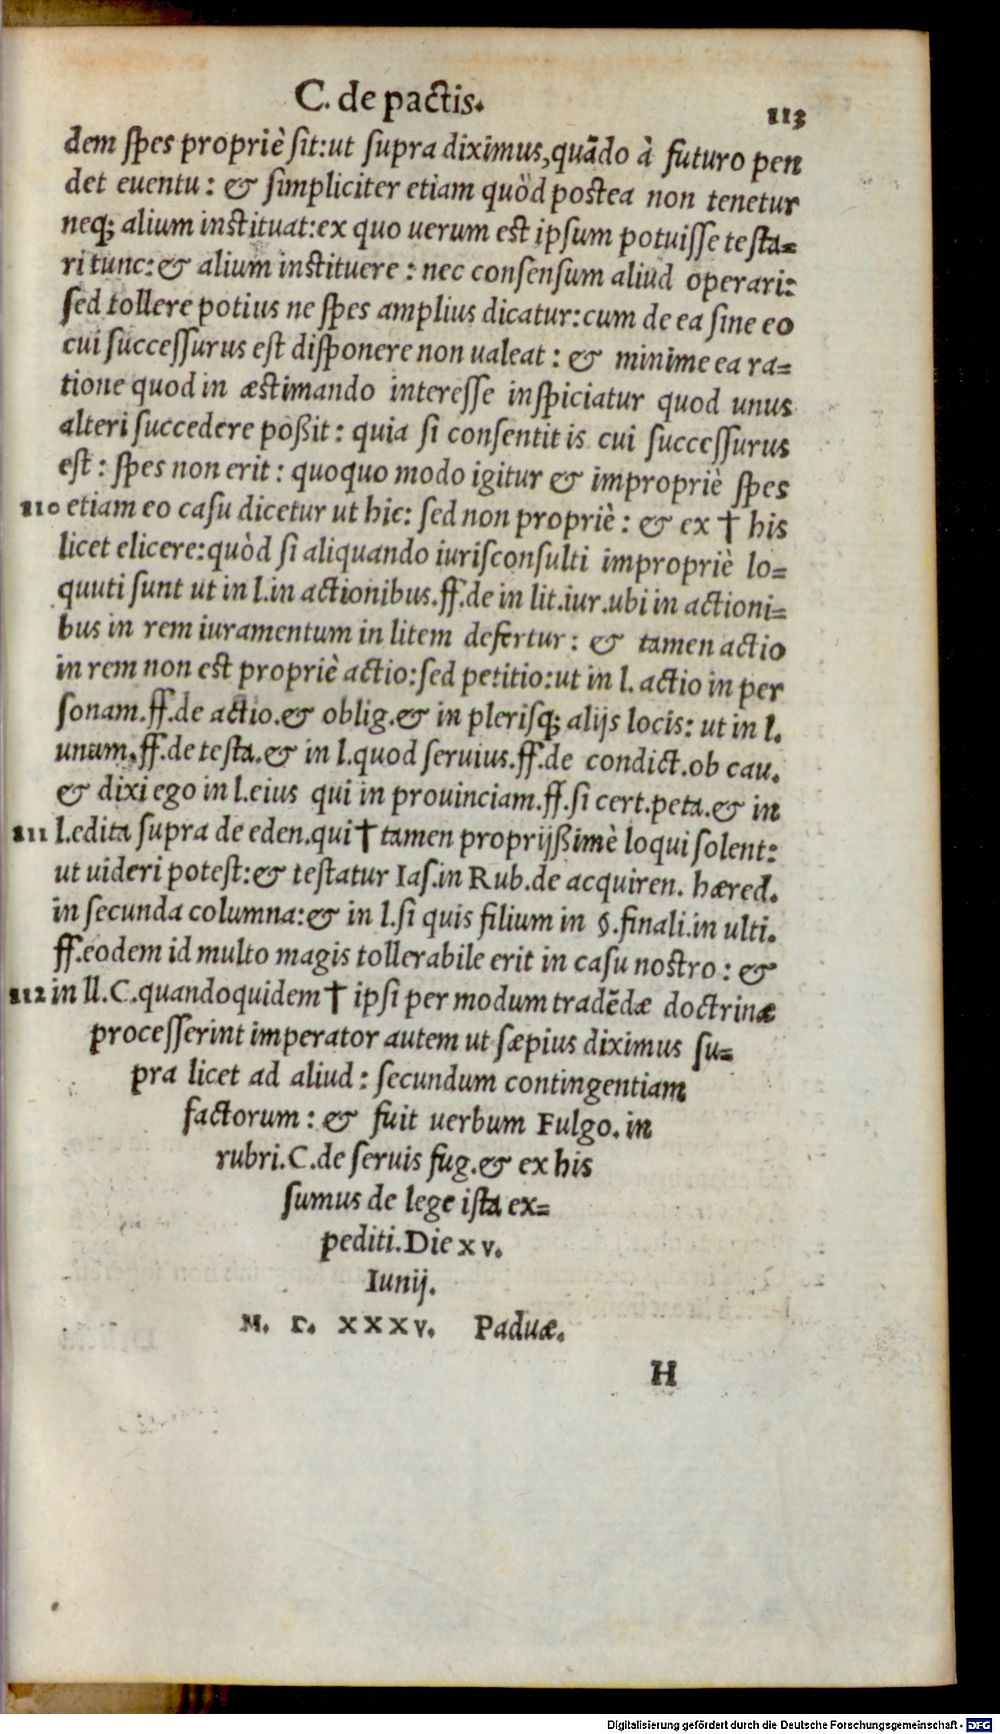 C. de pactis.
113
dem spes propriè sit: ut supra diximus, quãdo à futuro pen
det euentu: & simpliciter etiam quòd postea non tenetur
neq; alium instituat: ex quo uerum est ipsum potuisse testa=
ri tunc: & alium instituere: nec consensum aliud operari:
sed tollere potius ne spes amplius dicatur: cum de ea sine eo
cui successurus est disponere non ualeat: & minime ea ra=
tione quod in æstimando interesse inspiciatur quod unus
alteri succedere poßit: quia si consentit is cui successurus
est: spes non erit: quoquo modo igitur & impropriè spes
110 etiam eo casu dicetur ut hic: sed non propriè: & ex † his
licet elicere: quòd si aliquando iurisconsulti impropriè lo=
quuti sunt ut in l. in actionibus. ff. de in lit. iur. ubi in actioni=
bus in rem iuramentum in litem defertur: & tamen actio
in rem non est propriè actio: sed petitio: ut in l. actio in per
sonam. ff. de actio. & oblig. & in plerisq; alijs locis: ut in l.
unum. ff. de testa. & in l. quod seruius. ff. de condict. ob cau.
& dixi ego in l. eius qui in prouinciam. ff. si cert. peta. & in
111 l. edita supra de eden. qui † tamen proprijßimè loqui solent:
ut uideri potest: & testatur Ias. in Rub. de acquiren. hæred.
in secunda columna: & in l. si quis filium in §. finali. in ulti.
ff. eodem id multo magis tollerabile erit in casu nostro: &
112 in ll. C. quandoquidem † ipsi per modum tradẽdæ doctrinæ
processerint imperator autem ut sæpius diximus su=
pra licet ad aliud: secundum contingentiam
factorum: & fuit uerbum Fulgo. in
rubri. C. de seruis fug. & ex his
sumus de lege ista ex=
pediti. Die xv.
Iunij.
M. D. XXXV. Paduæ.
H
Digitalisierung gefördert durch die Deutsche Forschungsgemeinschaft - DFG